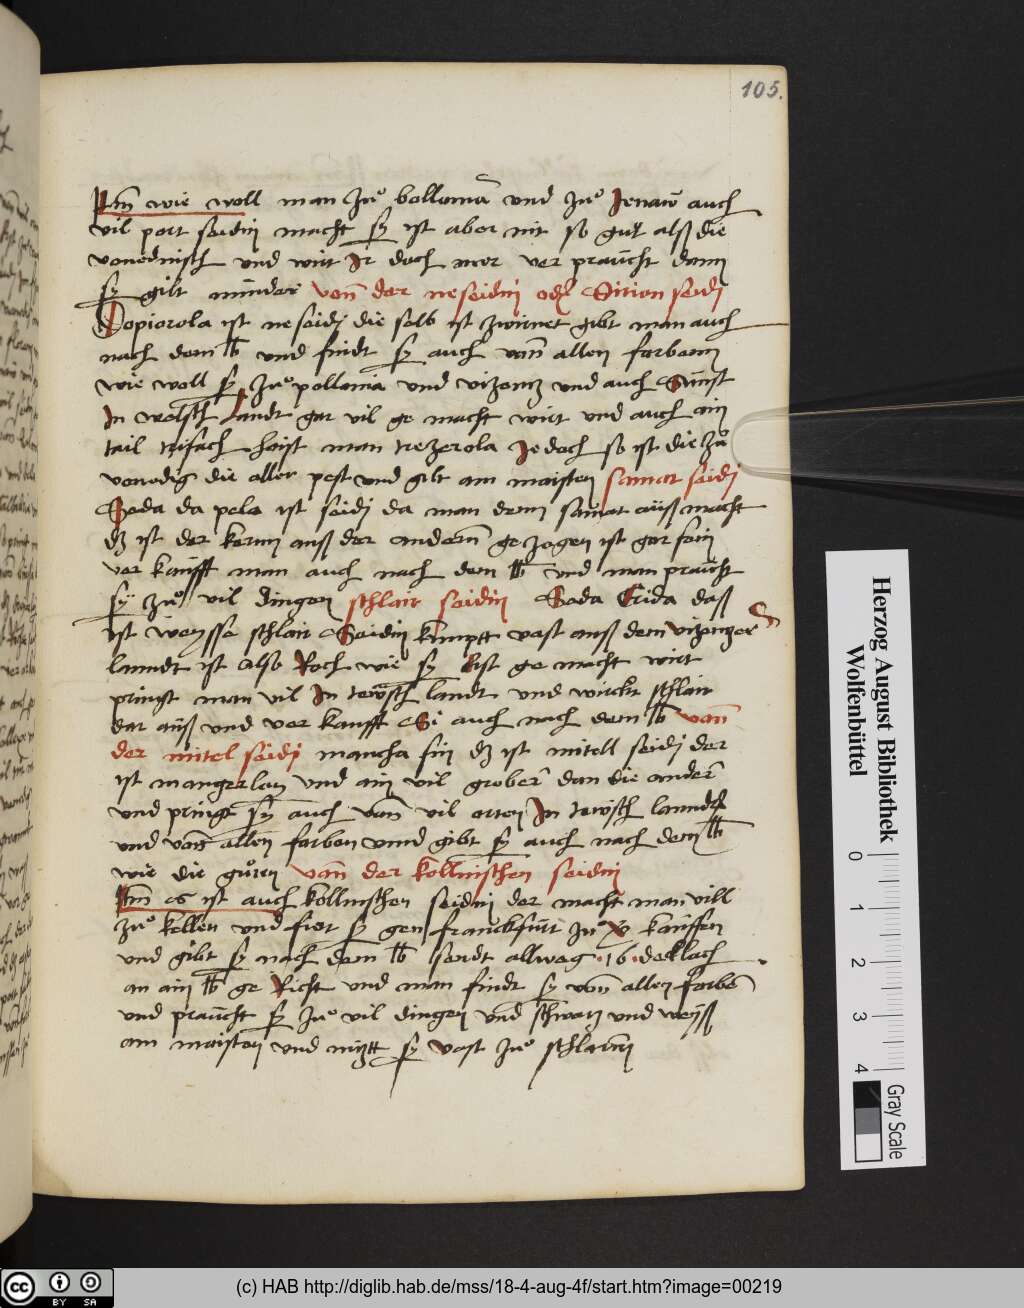 105.
Itm̄ wie woll man zuͦ bollomā und zuͦ Jenaw̄ auch
vil port seidin macht sÿ ist aber nit so gůt alß die
venednisch und wirt Ir doch mer ver praucht dann
sÿ gilt minder von̄ der neseidin od Sirion seidj
Dopiorola ist neseidj die selb ist zwirnet gibt man auch
nach dem lb und findt sÿ auch von̄ allen farbenn
wie woll sÿ zuͦ pollonia und vizentz und auch Sünst
In welsch landt gar vil ge macht wirt und auch ain
tail trifach haist man trezerola Jedoch so ist die zuͦ
venedig die aller pest und gilt am maisten samat seidj
Seda da pelo ist seidj da man denn samat auß macht
dz ist der kernn auß der andern̄ ge zogen ist gar fein
ver kaufft man auch nach dem lb und man praucht
sÿ zuͦ vil dingen schlair seidin Seda Crida daß
ist weysse schlair Seidin kumptt vast auß dem vizentzer
lanndt ist also Roch wie sÿ Erst ge macht wirt
pringt man vil In tewsch landt und wirckt schlair
dar auß und ver kaufft Si auch nach dem lb von̄
der mitel seidj mancha fin dz ist mitell seidj der
ist mangerlay und ain vil grober dan die ander
und pringt sÿ auch von̄ vil orten In tewsch lanndt
und von̄ allen farben unnd gibt sÿ auch nach dem lb
wie die guͦten von̄ der kollnischen seidin
Itm̄ es ist auch kollnischen seidin der macht man vill
zuͦ kellen und fiert sÿ gen franckfurt zuͦ kauffen
und gibt sÿ nach dem lb allweg 16 decklach
an ain lb ge Richt und man findt sÿ von̄ allen farbē
und praucht sÿ zuͦ vil dingen und schwartz und weÿß
am maisten und nÿtzt sÿ vast zuͦ schlairn
Herzog August Bibliothek
Wolfenbüttel
0 1 2 3 4
Gray Scale
cc BY SA
(c) HAB http://diglib.hab.de/mss/18-4-aug-4f/start.htm?image=00219